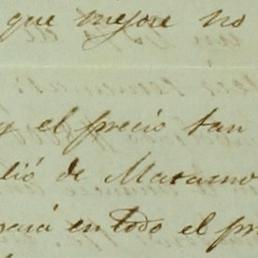 que mejore no
y el precio tan
lió de Matamo
pará en todo el pr